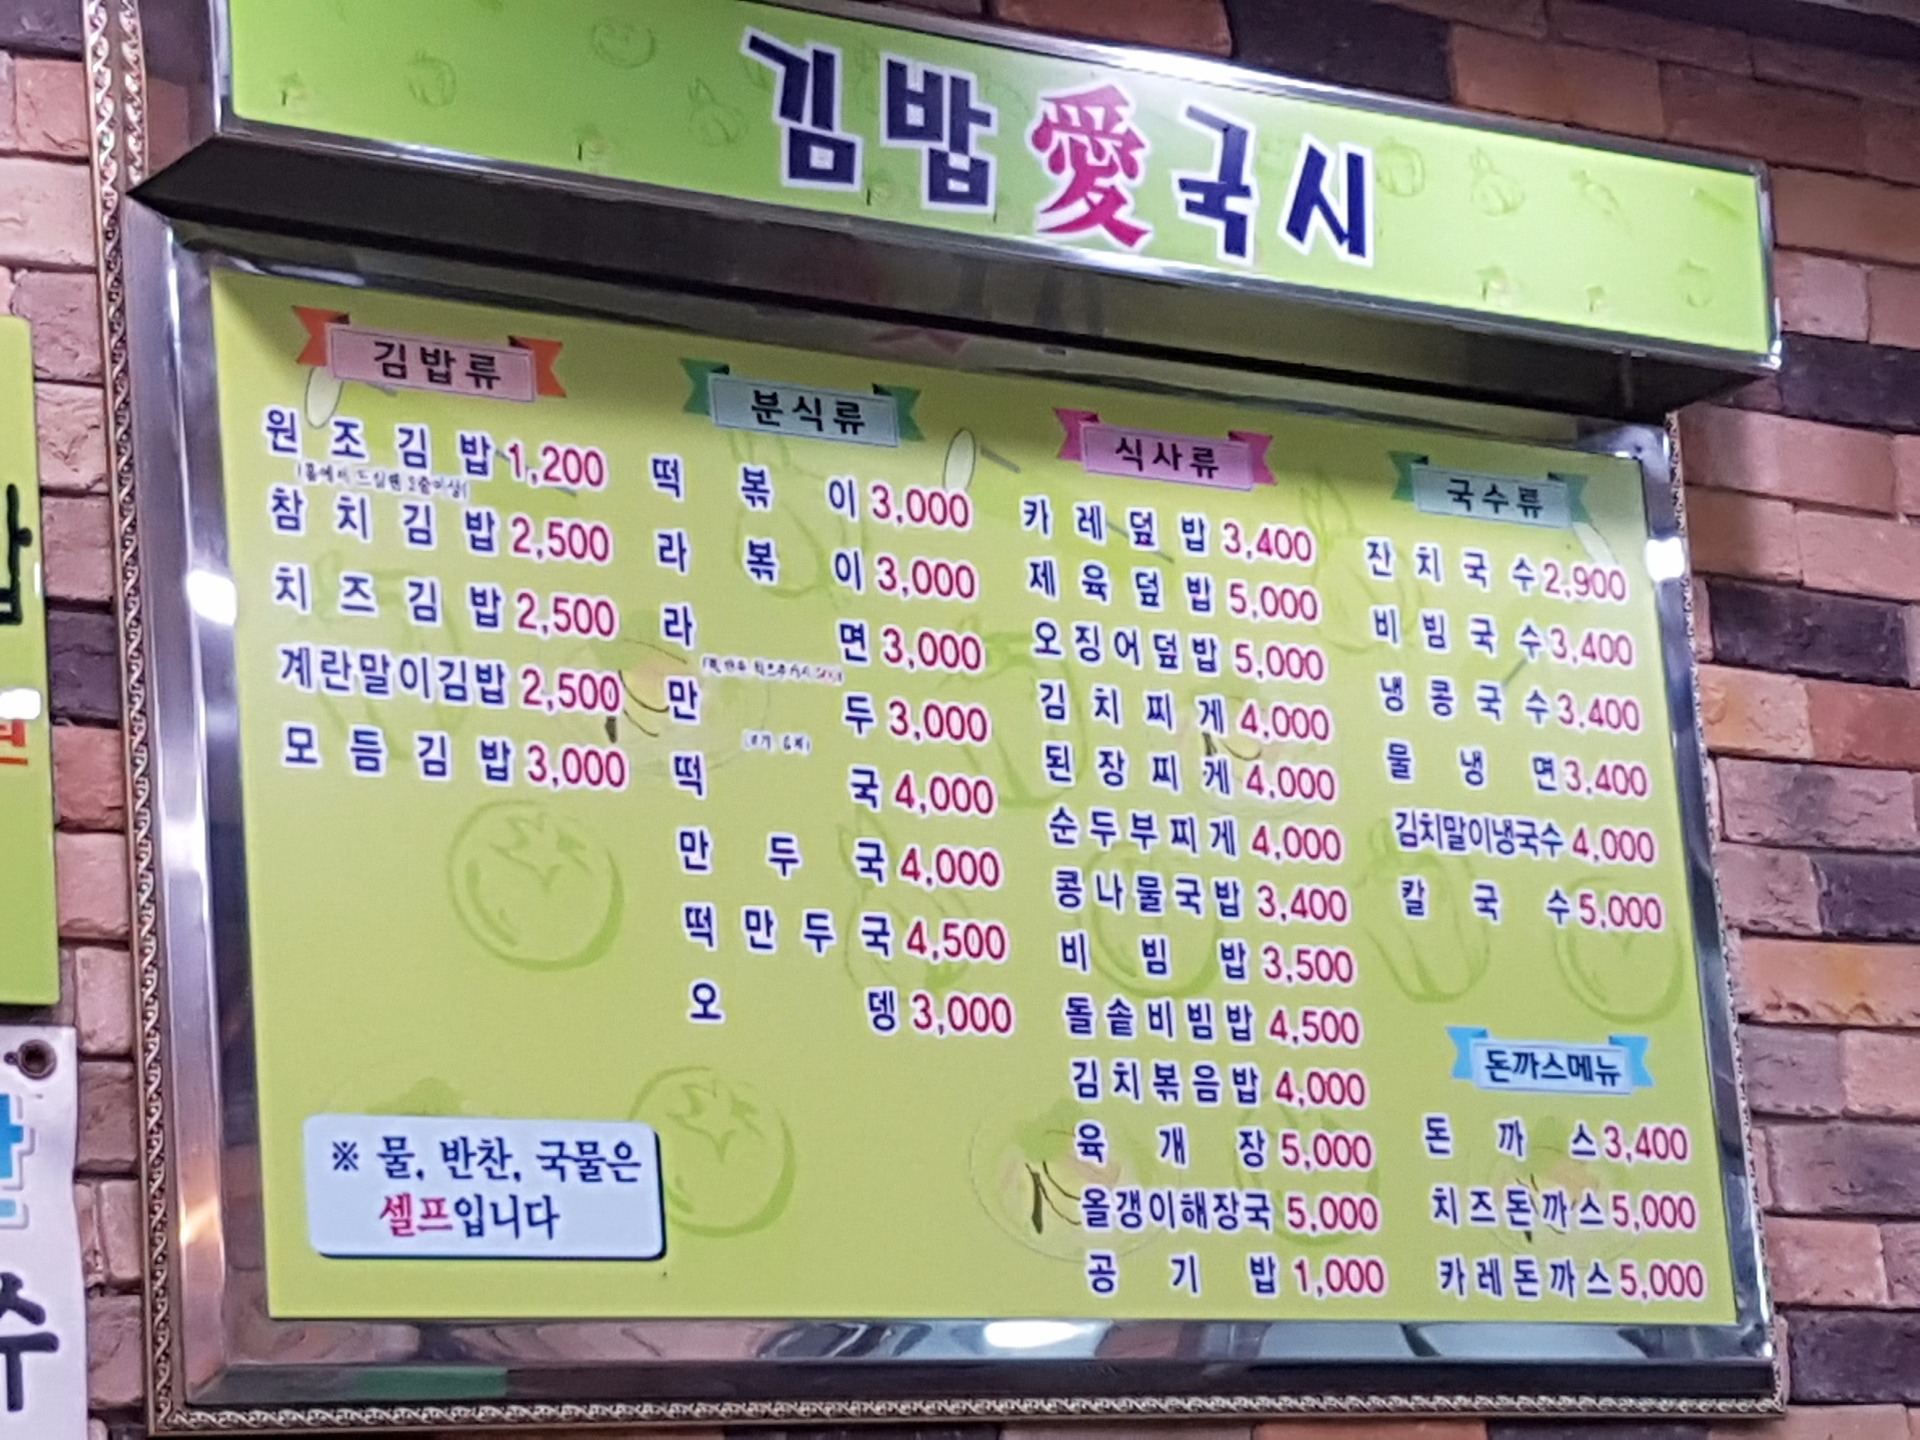 김밥愛국시
김밥류
원조김밥 1,200
참치김밥 2,500
치즈김밥 2,500
계란말이김밥 2,500
모듬김밥 3,000
※ 물, 반찬, 국물은
셀프입니다
분식류
떡볶이 3,000
라볶이 3,000
라면 3,000
만두 3,000
떡국 4,000
만두국 4,000
떡만두국 4,500
오뎅 3,000
식사류
카레덮밥 3,400
제육덮밥 5,000
오징어덮밥 5,000
김치찌게 4,000
된장찌게 4,000
순두부찌게 4,000
콩나물국밥 3,400
비빔밥 3,500
돌솥비빔밥 4,500
김치볶음밥 4,000
육개장 5,000
올갱이해장국 5,000
공기밥 1,000
국수류
잔치국수 2,900
비빔국수 3,400
냉콩국수 3.400
물냉면 3.400
김치말이냉국수 4,000
칼국수 5,000
돈까스메뉴
돈까스 3,400
치즈돈까스 5,000
카레돈까스 5,000
수